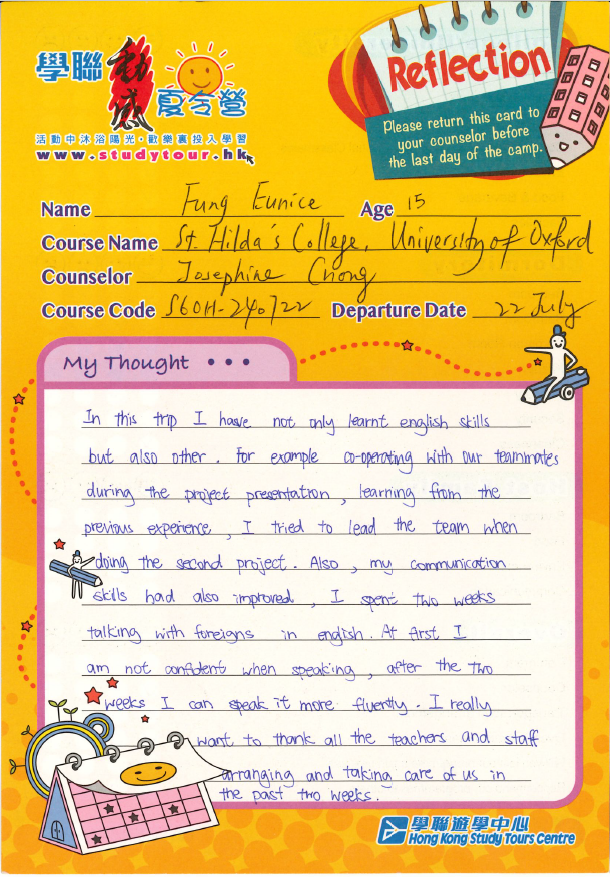 學聯動感夏令營
活動中沐浴陽光・歡樂裏投入學習
www.studytour.hk
Reflection
Please return this card to
your counselor before
the last day of the camp.
Name Fung Eunice Age 15
Course Name St. Hilda's College, University of Oxford
Counselor Josephine Chong
Course Code S6OH-240722 Departure Date 22 July
My Thought • • •
In this trip I have not only learnt english skills
but also other. For example co-operating with our teammates
during the project presentation, learning from the
previous experience, I tried to lead the team when
doing the second project. Also, my communication
skills had also improved, I spent two weeks
talking with foreigns in english. At first I
am not confident when speaking, after the two
weeks I can speak it more fluently. I really
want to thank all the teachers and staff
arranging and taking care of us in
the past two weeks.
學聯遊學中心
Hong Kong Study Tours Centre